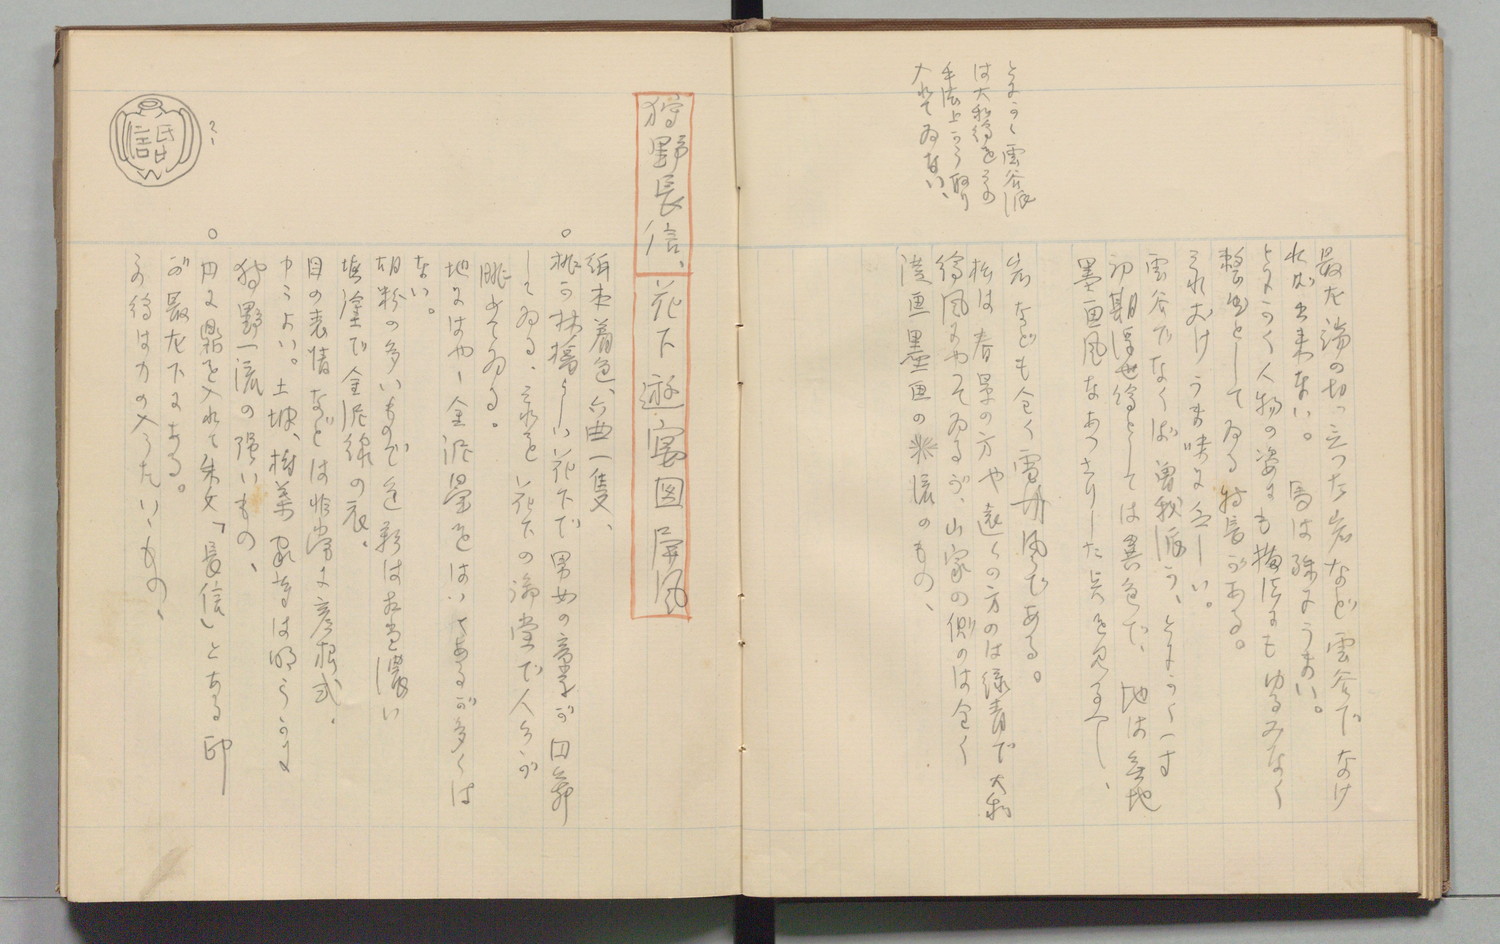 とにかく雲谷派
は大和絵をその
手法上から取り
入れてゐない、
最左端の切つ立つた岩など雲谷でなけ
れば出来ない。馬は殊にうまい。
とにかく人物の姿にも描法にもゆるみなく
整然としてゐる特長がある。
それだけうま味に乏しい。
雲谷でなくば曽我派か、とにかく一寸
初期浮世絵としては異色だ、地は無地
墨画風なあつさりした点を見るべし、
岩なども全く雪舟風である。
松は春景の方や遠くの方のは緑青で大和
絵風にやつてゐるが、山家の側のは全く
漢画墨画の派のもの、
狩野長信、花下遊宴図屏風
紙本着色、六曲一隻、
○桃か林檎らしい花下で男女の童子が円舞
してゐる、それを花下の御堂で人々が
眺めてゐる。
地にはやゝ金泥暈をはいてあるが多くは
ない。
胡粉の多いもので色彩は相当濃い
塡塗で金泥線の衣、
目の表情などは非常に彦根式、
中々よい。土坡、樹葉家等は明らかに
狩野一流の強いもの、
○円に鼎を入れて朱文「長信」とある印
が最左下にある。
この絵は力の入つたいゝもの、